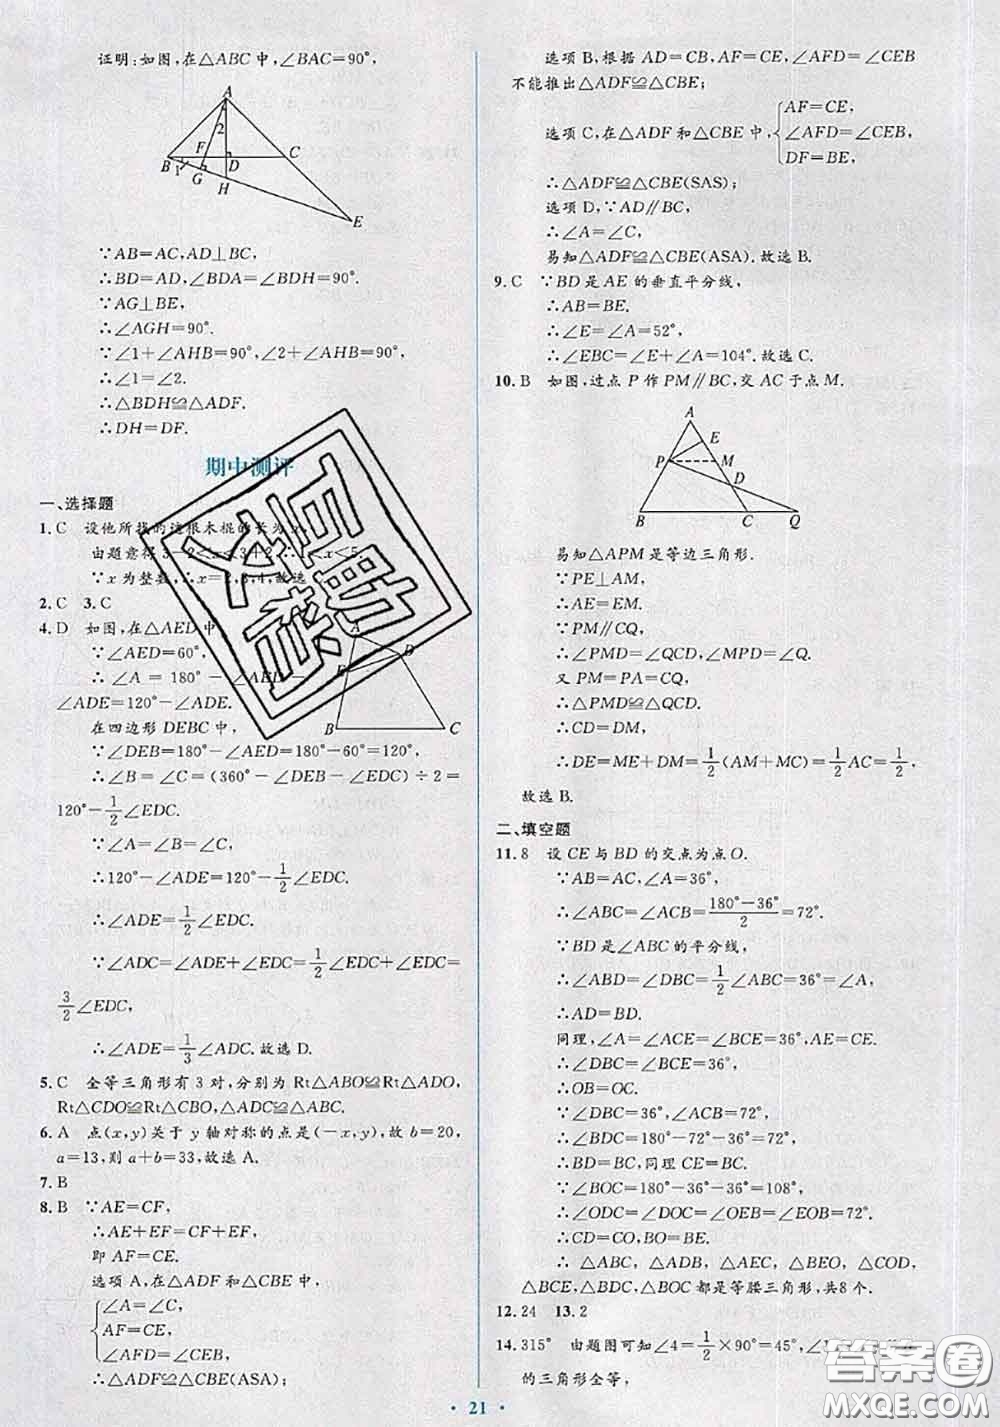 证明:如图,在△ABC中,∠BAC=90°,
A
2
F
B
1
G
D
C
H
E
∵AB=AC,AD⊥BC,
∴BD=AD,∠BDA=∠BDH=90°.
∵AG⊥BE,
∴∠AGH=90°.
∵∠1+∠AHB=90°,∠2+∠AHB=90°,
∴∠1=∠2.
∴△BDH≌△ADF.
∴DH=DF.
期中测评
一、选择题
1.C 设他所找的这根木棍的长为x,
由题意得3-2<x<3+2,∴1<x<5.
∵x为整数,∴x=2,3,4,故选
2.C 3.C
4.D 如图,在△AED中,
∵∠AED=60°,
∴∠A=180°-∠AED-
∠ADE=120°-∠ADE.
A
E
D
B
C
在四边形DEBC中,
∵∠DEB=180°-∠AED=180°-60°=120°,
∴∠B=∠C=(360°-∠DEB-∠EDC)÷2=
120°-1/2∠EDC.
∵∠A=∠B=∠C,
∴120°-∠ADE=120°-1/2∠EDC.
∴∠ADE=1/2∠EDC.
∵∠ADC=∠ADE+∠EDC=1/2∠EDC+∠EDC=
3/2∠EDC,
∴∠ADE=1/3∠ADC.故选D.
5.C 全等三角形有3对,分别为Rt△ABO≌Rt△ADO,
Rt△CDO≌Rt△CBO,△ADC≌△ABC.
6.A 点(x,y)关于y轴对称的点是(-x,y),故b=20,
a=13,则a+b=33,故选A.
7.B
8.B ∵AE=CF,
∴AE+EF=CF+EF,
即AF=CE.
选项A,在△ADF和△CBE中,
∠A=∠C,
AF=CE,
∠AFD=∠CEB,
∴△ADF≌△CBE(ASA);
选项B,根据AD=CB,AF=CE,∠AFD=∠CEB
不能推出△ADF≌△CBE;
选项C,在△ADF和△CBE中,
AF=CE,
∠AFD=∠CEB,
DF=BE,
∴△ADF≌△CBE(SAS);
选项D,∵AD∥BC,
∴∠A=∠C,
易知△ADF≌△CBE(ASA).故选B.
9.C ∵BD是AE的垂直平分线,
∴AB=BE.
∴∠E=∠A=52°,
∴∠EBC=∠E+∠A=104°.故选C.
10.B 如图,过点P作PM∥BC,交AC于点M.
A
E
P
M
D
B
C
Q
易知△APM是等边三角形.
∵PE⊥AM,
∴AE=EM.
∵PM∥CQ,
∴∠PMD=∠QCD,∠MPD=∠Q.
又PM=PA=CQ,
∴△PMD≌△QCD.
∴CD=DM.
∴DE=ME+DM=1/2(AM+MC)=1/2AC=1/2,
故选B.
二、填空题
11.8 设CE与BD的交点为点O.
∵AB=AC,∠A=36°,
∴∠ABC=∠ACB=(180°-36°)/2=72°.
∵BD是∠ABC的平分线,
∴∠ABD=∠DBC=1/2∠ABC=36°=∠A,
∴AD=BD.
同理,∠A=∠ACE=∠BCE=36°,AE=CE.
∴∠DBC=∠BCE=36°,
∴OB=OC.
∵∠DBC=36°,∠ACB=72°,
∴∠BDC=180°-72°-36°=72°.
∴BD=BC,同理CE=BC.
∵∠BOC=180°-36°-36°=108°,
∴∠ODC=∠DOC=∠OEB=∠EOB=72°.
∴CD=CO,BO=BE.
∴△ABC,△ABD,△AEC,△BEO,△COD,
△BCE,△BDC,△BOC都是等腰三角形,共8个.
12.24 13.2
14.315° 由题图可知∠4=1/2×90°=45°,∠
的三角形全等,
• 21 •
互动
文卷
答案圈
MXQE.COM